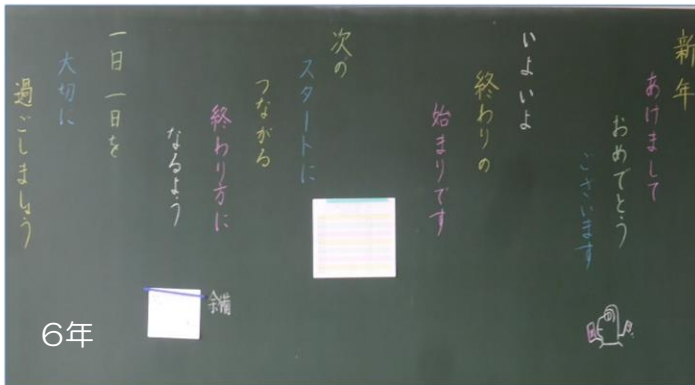 新年
あけまして
おめでとう
ございます
いよいよ
終わりの
始まりです
次の
スタートに
つながる
終わり方に
なるよう
一日一日を
大切に
過ごしましょう
余備
6年